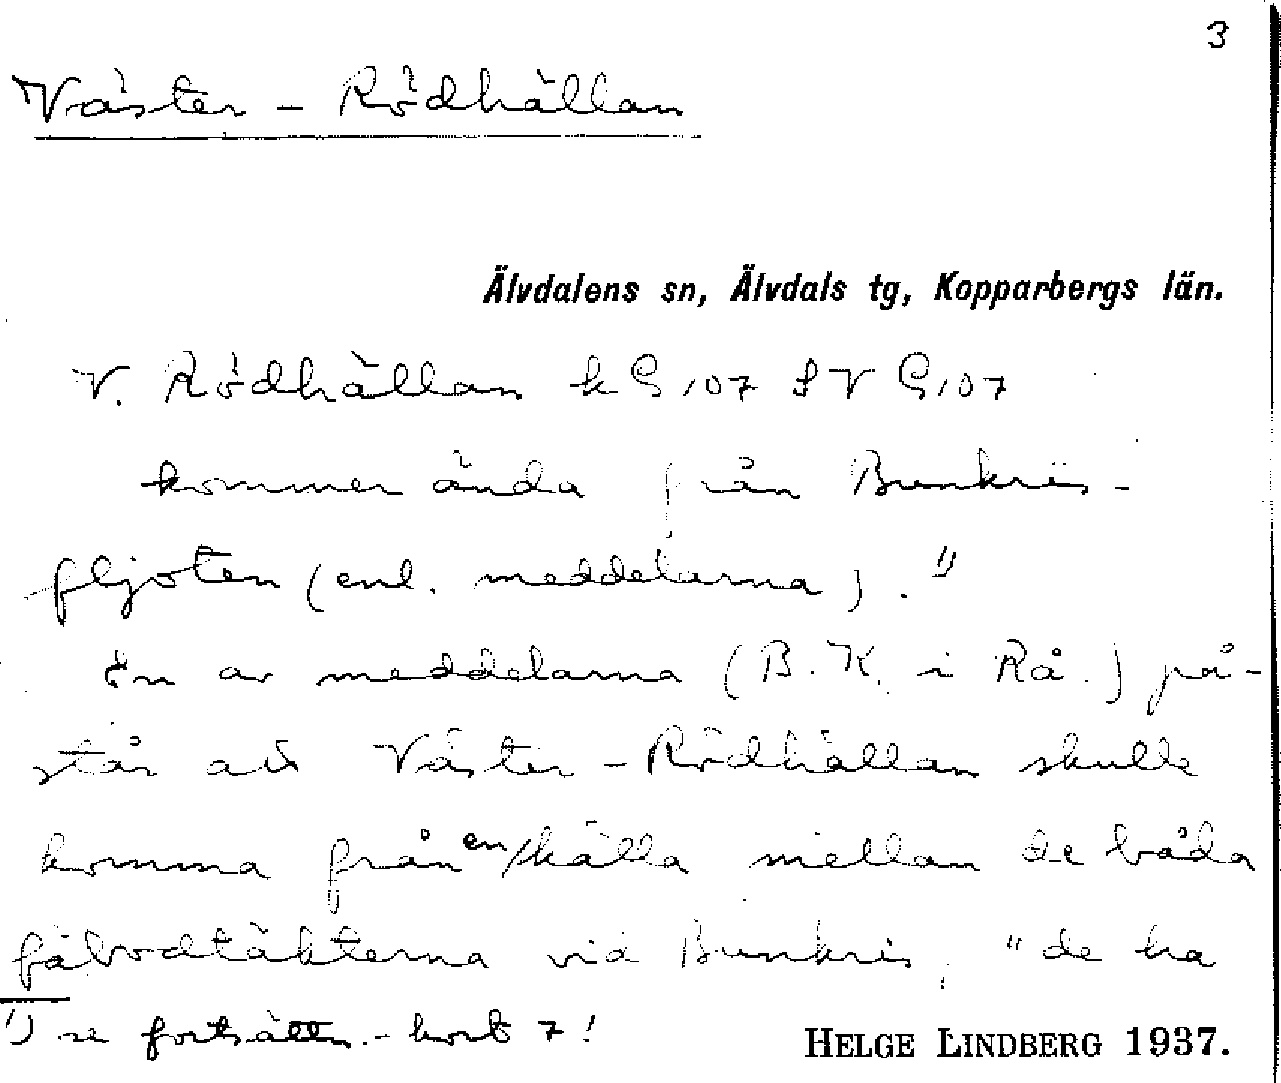 3
Väster - Rödhällan
Älvdalens sn, Älvdals tg, Kopparbergs län.
V. Rödhällan k G 107 f V G 107
kommer ända från Bunkris-
fljoten (enl. meddelarna). 1)
En av meddelarna (B. K. i Rå.) på-
står att Väster - Rödhällan skulle
komma från en källa mellan de båda
fäbodtäkterna vid Bunkris, "de ha
1) se fortsättn.-kort 7!
HELGE LINDBERG 1937.